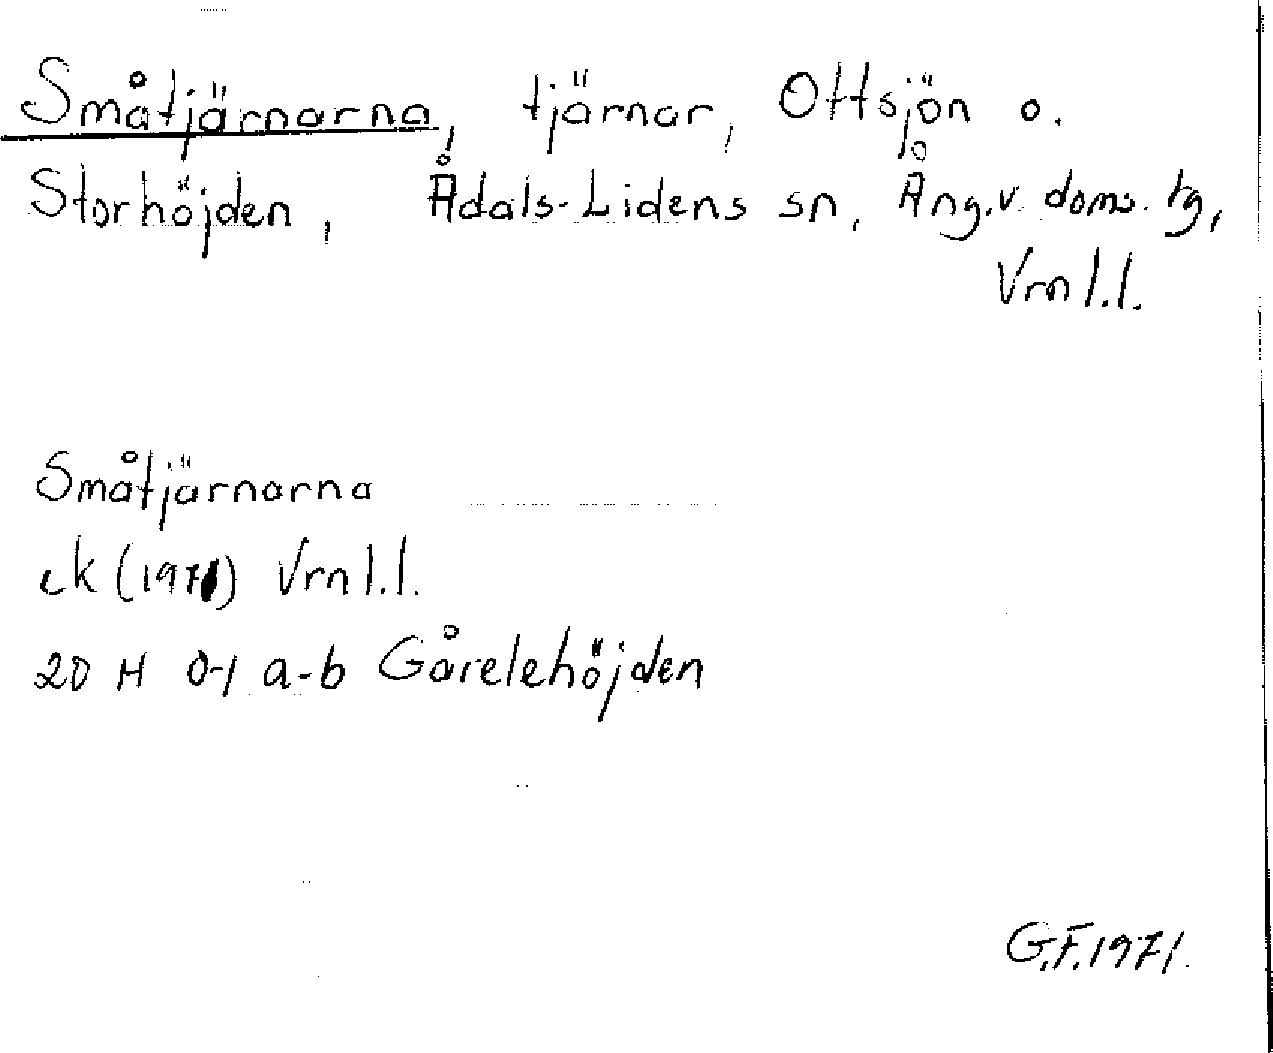 Småtjärnarna, tjärnar, Ottsjön o.
Storhöjden, Ådals-Lidens sn, Ång.v. doms. tg,
Vrn l.l.
Småtjärnarna
ek (1971) Vrn l.l.
20 H 0-1 a-b Gårelehöjden
G.F. 1971.